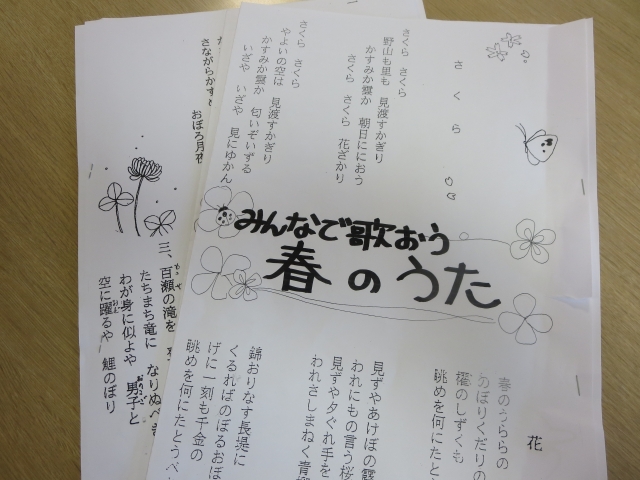 さくら
さくら さくら
野山も里も 見渡すかぎり
かすみか雲か 朝日ににおう
さくら さくら 花ざかり
さくら さくら
やよいの空は 見渡すかぎり
かすみか雲か 匂いぞいずる
いざや いざや 見にゆかん
みんなで歌おう
春のうた
花
春のうららの
のぼりくだりの
櫂のしずくも
眺めを何にたと
見ずやあけぼの露
われにもの言う桜
見ずや夕ぐれ手を
われさしまねく青柳
錦おりなす長堤に
くるればのぼるおぼ
げに一刻も千金の
眺めを何にたとうべ
さながらかすめ
おぼろ月夜
三、百瀬の滝を
たちまち竜に なりぬべき
わが身に似よや 男子と
空に躍るや 鯉のぼり